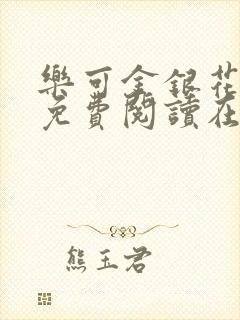 樂可金銀花
免費閱讀在
熊玉君